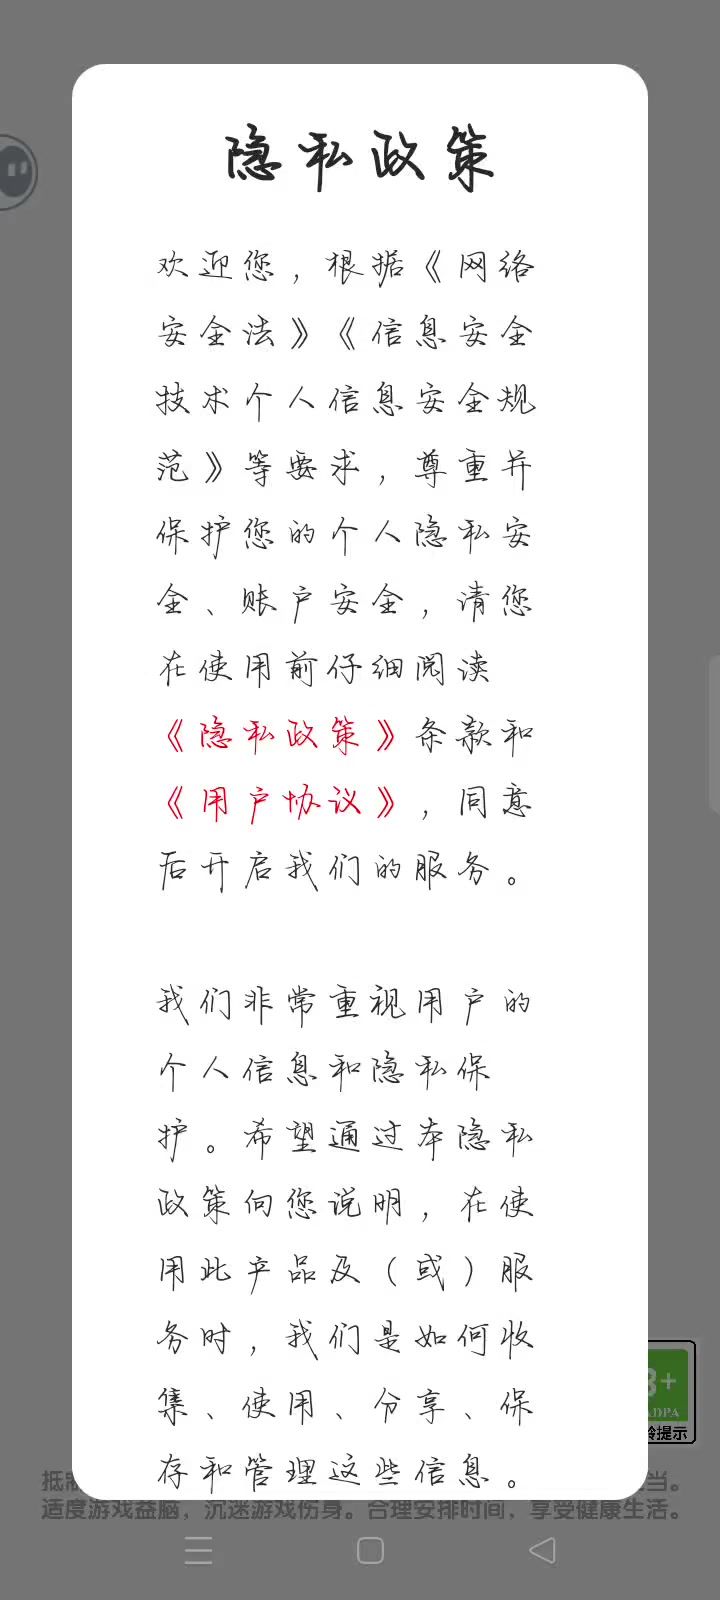 隐私政策
欢迎您，根据《网络
安全法》《信息安全
技术个人信息安全规
范》等要求，尊重并
保护您的个人隐私安
全、账户安全，请您
在使用前仔细阅读
《隐私政策》条款和
《用户协议》，同意
后开启我们的服务。
我们非常重视用户的
个人信息和隐私保
护。希望通过本隐私
政策向您说明，在使
用此产品及（或）服
务时，我们是如何收
集、使用、分享、保
存和管理这些信息。
8+
龄提示
抵制
当。
适度游戏益脑，沉迷游戏伤身。合理安排时间，享受健康生活。